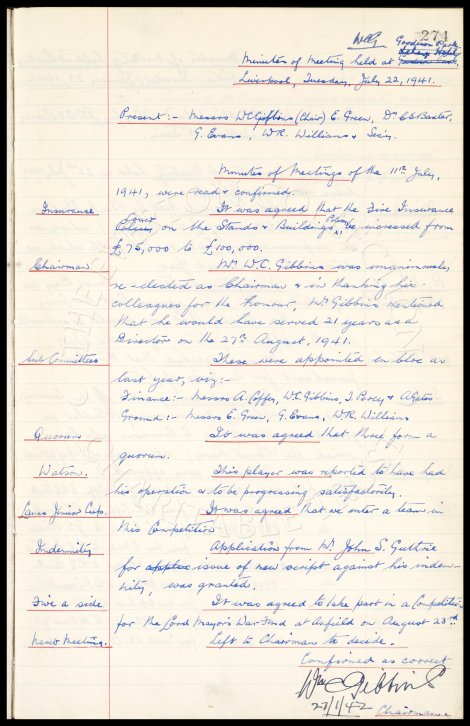 274
WCG Goodison Park
Minutes of Meeting held at
Liverpool, Tuesday, July 22, 1941.
Present :- Messrs WCGibbins (Chair) E. Green, Dr C.S. Baxter,
G. Evans, W.R. Williams & Secy.
Minutes of Meetings of the 11th July,
1941, were read & confirmed.
Insurance It was agreed that the Fire Insurance
Cover on the Stands & Buildings be increased from
£75,000 to £100,000.
Chairman Mr W.C. Gibbins was unanimously
re-elected as Chairman & in thanking his
colleagues for the honour, Mr Gibbins mentioned
that he would have served 21 years as a
Director on the 27th August, 1941.
Sub Committees These were appointed en bloc as
last year, viz:-
Finance:- Messrs A. Coffey, W.C. Gibbins, J. Percy, & A Gates
Ground:- Messrs E. Green, G. Evans, W.R. Williams
Quorum It was agreed that three form a
quorum.
Watson. This player was reported to have had
his operation & to be progressing satisfactorily.
Lancs Junior Cup. It was agreed that we enter a team in
this Competition
Indemnity Application from Mr. John S. Guthrie
for issue of new script against his indem-
nity, was granted.
Five a side It was agreed to take part in a Competition
for the Lord Mayor's War Fund at Anfield on August 23rd.
Next Meeting. Left to Chairman to decide.
Confirmed as correct
Wm C Gibbins
22/1/42 Chairman